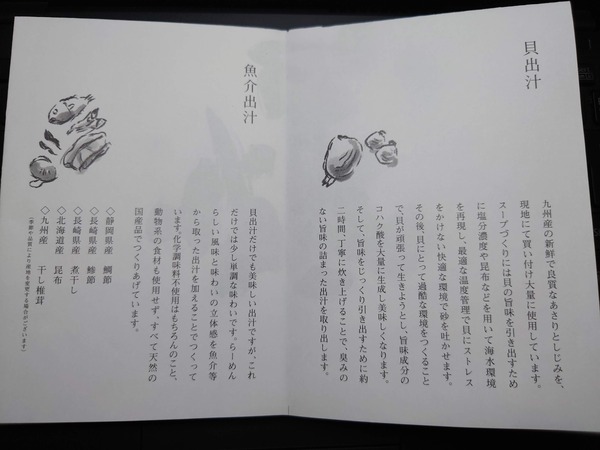 貝出汁
九州産の新鮮で良質なあさりとしじみを、
現地にて買い付け大量に使用しています。
スープづくりには貝の旨味を引き出すため
に塩分濃度や昆布などを用いて海水環境
を再現し、最適な温度管理で貝にストレス
をかけない快適な環境で砂を吐かせます。
その後、貝にとって過酷な環境をつくること
で、貝が頑張って生きようとし、旨味成分の
コハク酸を大量に生成し美味しくなります。
そして、旨味をじっくり引き出すために約
二時間、丁寧に炊き上げることで、臭みの
ない旨味の詰まった出汁を取り出します。
魚介出汁
貝出汁だけでも美味しい出汁ですが、これ
だけでは少し単調な味わいです。らーめん
らしい風味と味わいの立体感を魚介等
から取った出汁を加えることでつくって
います。化学調味料不使用はもちろんのこと、
動物系の食材も使用せず、すべて天然の
国産品でつくりあげています。
◇静岡県産 鯛節
◇長崎県産 鯵節
◇長崎県産 煮干し
◇北海道産 昆布
◇九州産 干し椎茸
(季節や品質により産地を変更する場合がございます)